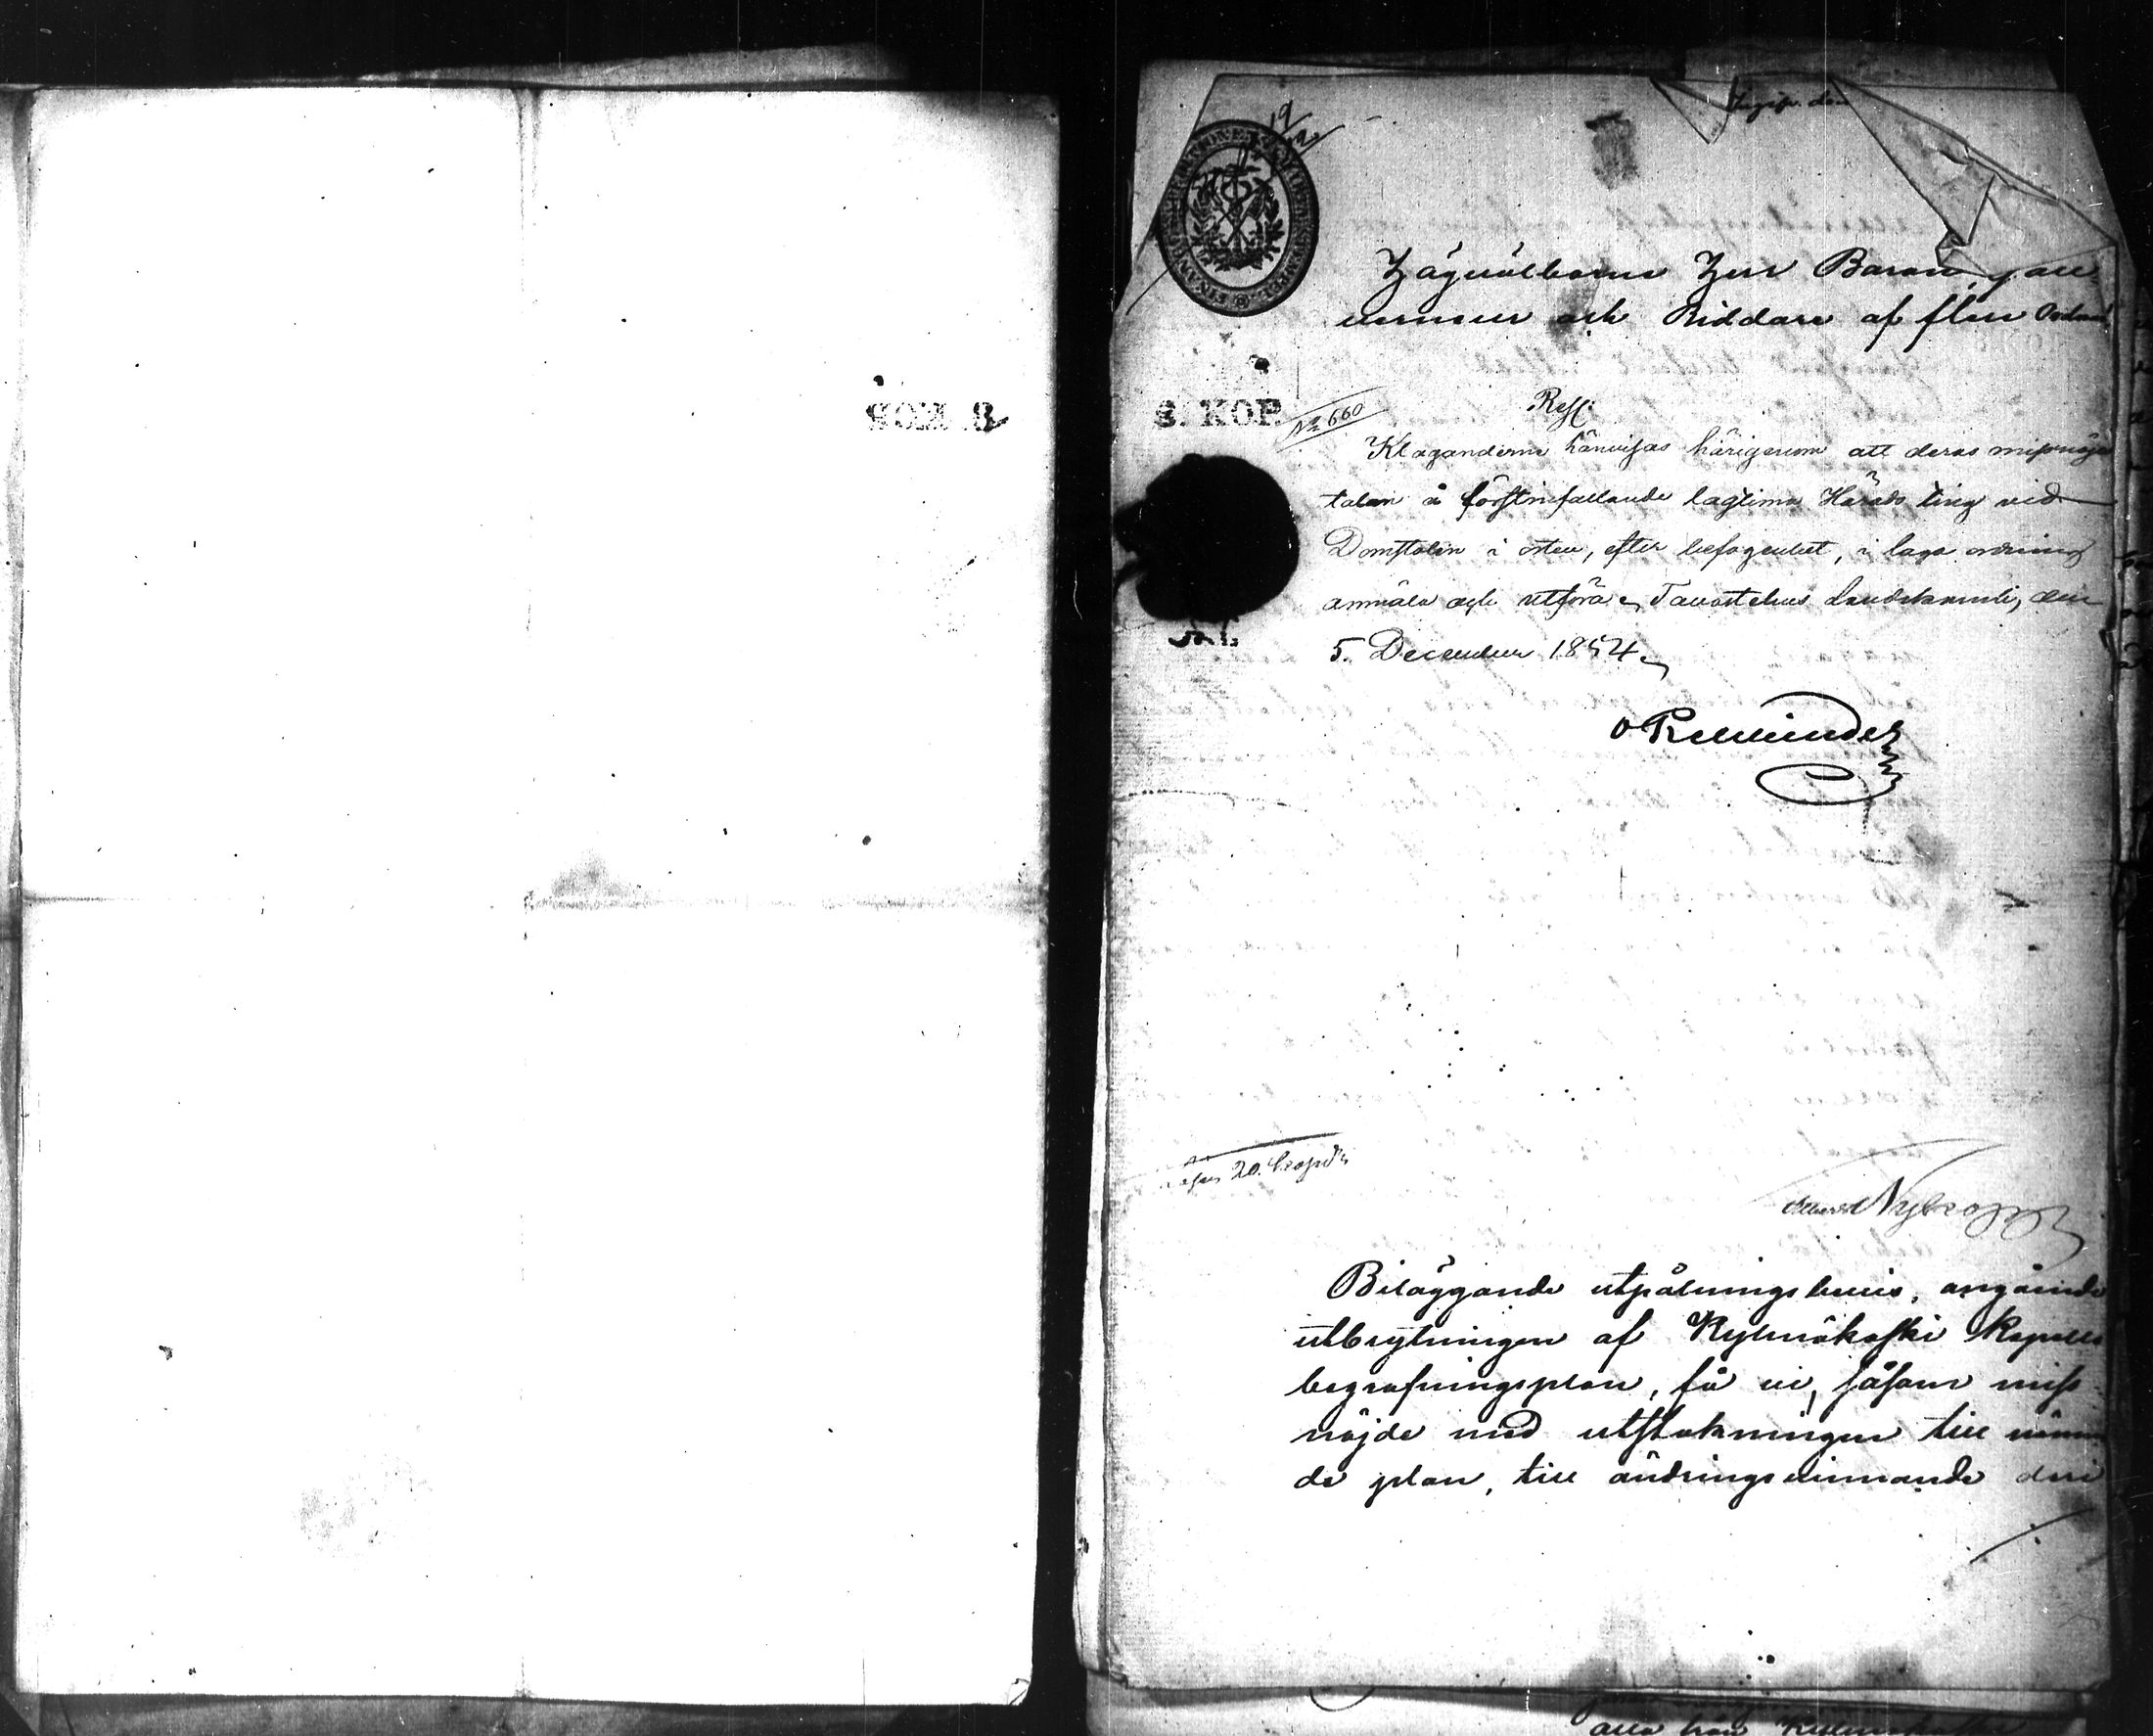 19/12
Ingifv. den
Högvälborne Herr Baron, gou-
verneur och Riddare af flere Ordnar
S. KOP.
№ 660
Resl:
Klaganderne hänvisas härigenom att deras missnöje
talan å förstinfallande lagtima Härads ting vid
Domstolen i orten, efter befogenhet, i laga ordning
anmäla och utföra, Tavastehus Landskansli, den
5. December 1854
O Rehbinder
20. Kop
Nykopp
Biläggande utpålningsbevis, angående
utbrytningen af Kylmäkoski Kapells
begrafningsplan, få vi, såsom miss-
nöjde med utstakningen till nämn
de plan, till ändringsvinnande deri